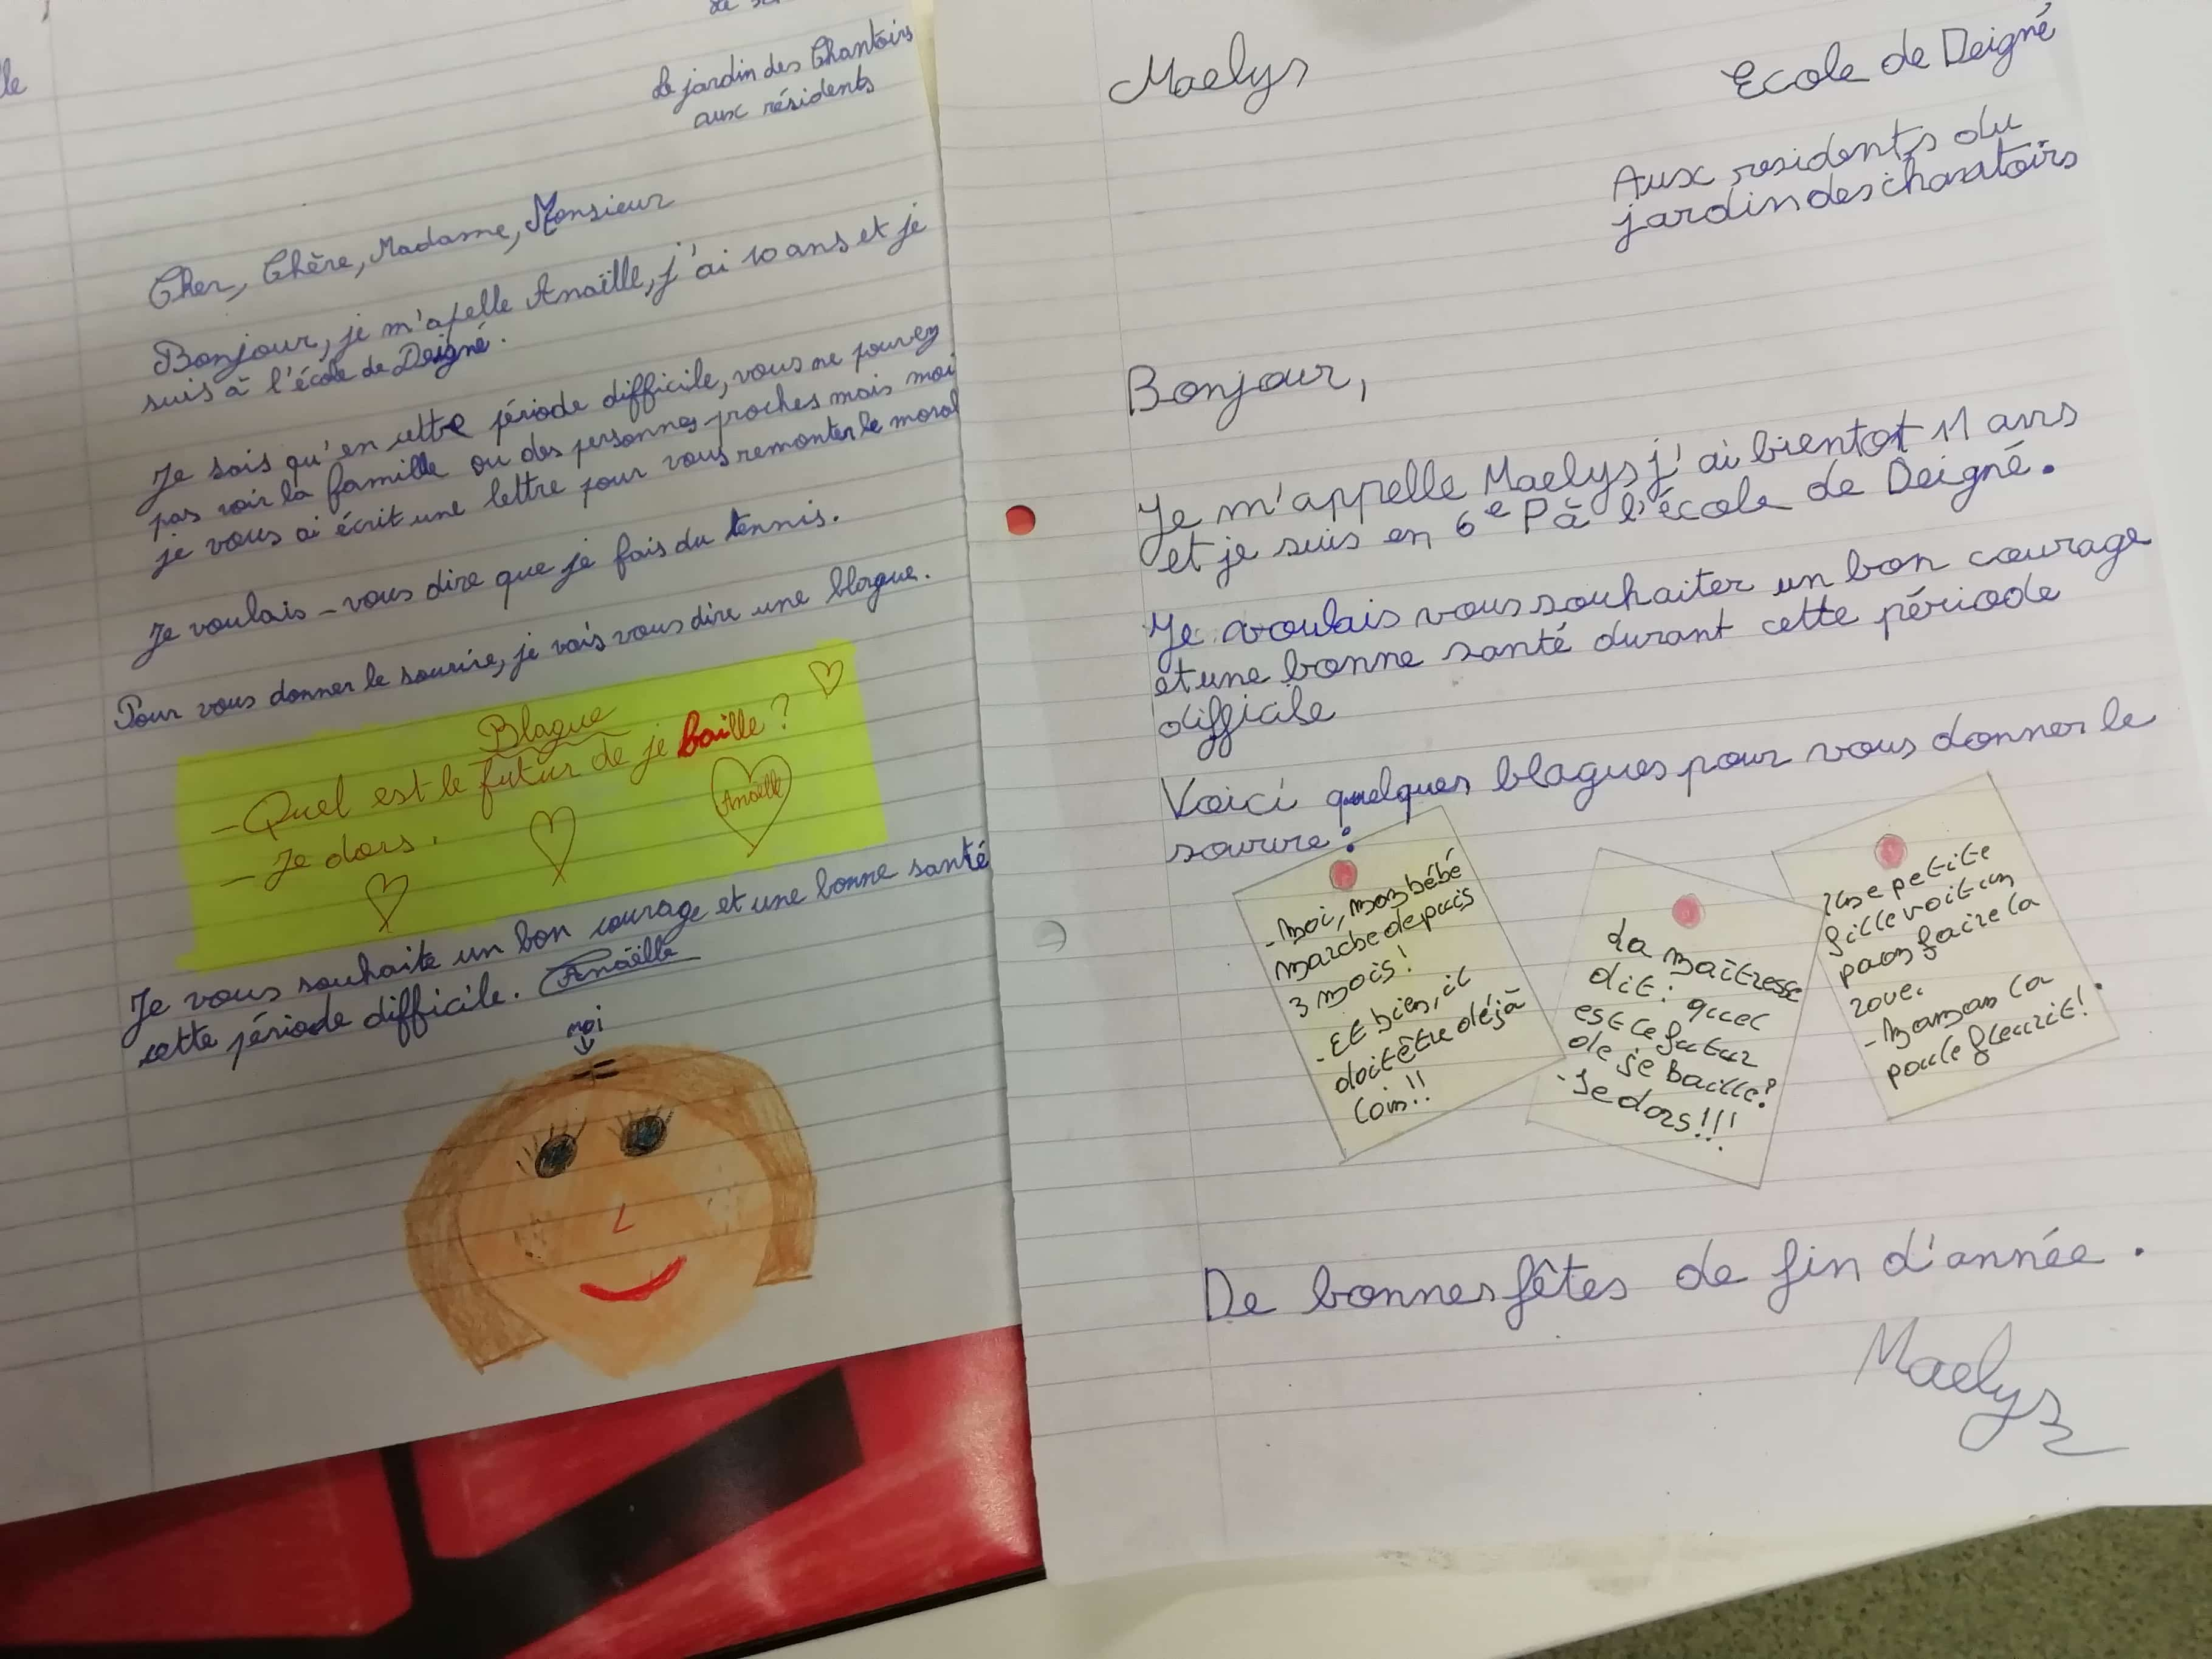 le
Le jardin des Chantoirs
aux résidents
Cher, Chère, Madame, Monsieur
Bonjour, je m'apelle Anaïlle, j'ai 10 ans et je
suis à l'école de Deigné.
Je sais qu'en cette période difficile, vous ne pouvez
pas voir la famille ou des personnes proches mais moi
je vous ai écrit une lettre pour vous remonter le moral
Je voulais-vous dire que je fais du tennis.
Pour vous donner le sourire, je vais vous dire une blague.
Blague
- Quel est le futur de je baille ?
- Je dors.
Anaëlle
Je vous souhaite un bon courage et une bonne santé
cette période difficile. Anaëlle
moi
Maelys
Ecole de Deigné
Aux residents du
jardin des chantoirs
Bonjour,
Je m'appelle Maelys j'ai bientot 11 ans
et je suis en 6e P à l'école de Deigné.
Je voulais vous souhaiter un bon courage
et une bonne santé durant cette période
difficile
Voici quelques blagues pour vous donner le
sourire :
- Moi, mon bébé
marche depuis
3 mois!
- Et bien, il
doit être déjà
loin!!
La maîtresse
dit: quel
est le futur
de je baille?
- Je dors!!!
Une petite
fille voit un
paon faire la
roue.
- Maman la
poule fleurit!
De bonnes fêtes de fin d'année.
Maelys